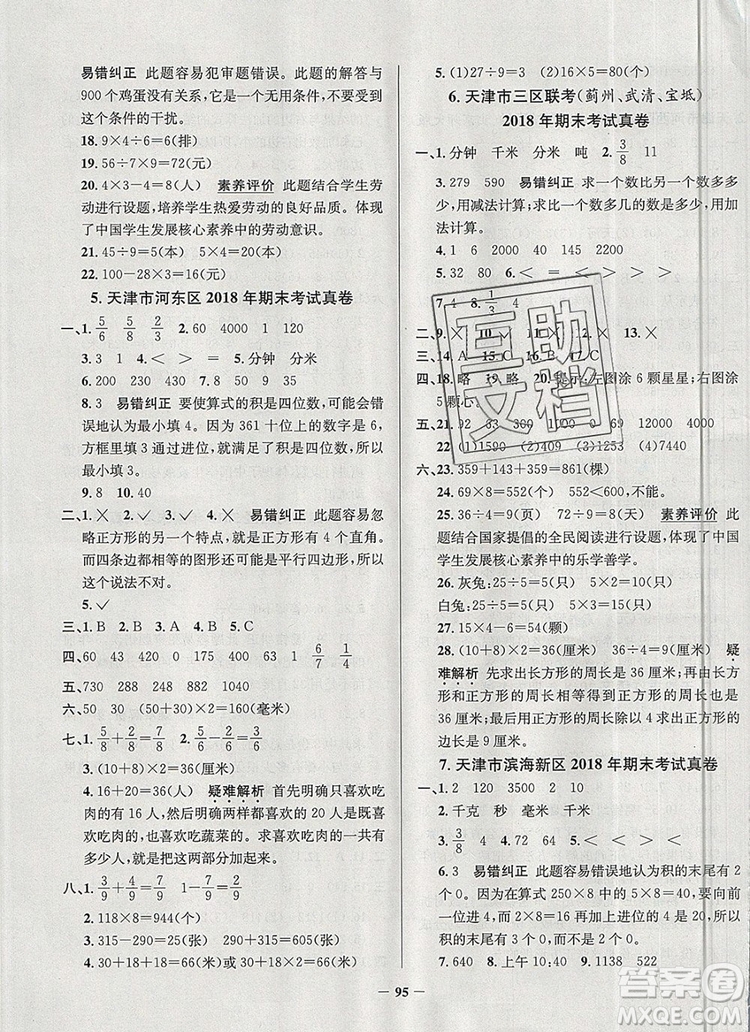 易错纠正 此题容易犯审题错误。此题的解答与
900 个鸡蛋没有关系，它是一个无用条件，不要受到
这个条件的干扰。
18. 9×4÷6=6(排)
19. 56÷7=8(元) 8×9=72(元)
20. 4×3-4=8(人) 素养评价 此题结合学生劳
动进行设题，培养学生热爱劳动的良好品质。体现
了中国学生发展核心素养中的劳动意识。
21. 45÷9=5(本) 5×4=20(本)
22. 100-28×3=16(元)
5. 天津市河东区 2018 年期末考试真卷
一、1. 5/6 5/8 3/5 2. 60 4000 1 120
3. 3 1 4. < > = 5. 分钟 分米
6. 200 230 430 7. 180
8. 3 易错纠正 要使算式的积是四位数，可能会错
误地认为最小填 4。因为 361 十位上的数字是 6，
如果乘 2 能够通过进位，就满足了积是四位数，所以
最小填 3。
9. 8 10. 40
二、1. × 2. ✓ 3. ✓ 4. × 易错纠正 此题容易忽
略正方形的另一个特点，就是正方形有 4 个直角。
而四条边都相等的图形还可能是平行四边形，所以
这个说法不对。
5. ✓
三、1. B 2. B 3. A 4. B 5. C
四、60 43 420 175 0 310 1000 1 6/7 1/4
五、730 288 248 882 1040
六、50 30 (50+30)×2=160(毫米)
七、1. 5/8+2/8=7/8 2. 5/6-2/6=3/6
3. (10+8)×2=36(厘米)
4. 16+20=36(人) 疑难解析 首先明确只喜欢吃
肉的有 16 人，然后明确两样都喜欢的 20 人，既喜
欢吃肉，也喜欢吃蔬菜的。求喜欢吃肉的一共有
多少人，就是把这两部分加起来。
八、1. 3/9+4/9=7/9 1-7/9=2/9
2. 118×8=944(个)
3. 29+31×4=153(张)
4. 30+18+18=66(米)或30+30+18=78(米)
5. (1)27÷9=3 (2)16×5=80(个)
6. 天津市三区联考(蓟州、武清、宝坻)
2018 年期末考试真卷
一、1. 分钟 千米 分米 吨 2. 3/8 11
3. 279 590 易错纠正 求一个数比另一个数多多
少，用减法计算；求比一个数多几的数是多少，用加
法计算。
4. 1 6 2000 40 1500 2200
5. 32 80 6. < < > >
7. 4 8.
二、9. × 10. × 11. 12. × 13. ×
三、14. A 15. C 16. 17. C
四、18. 略 19. 略 20. 提示：左图涂 6 颗星星；右图涂
5 颗心
五、21. 92 33 0 829 0 12000 4
22. (1)290 (2)1539 (3)61 (4)7440
六、23. 359+143+359=861(棵)
24. 69×8=552(个) 552<600，不能。
25. 36÷4=9(页) 72÷9=8(天) 素养评价 此
题结合国家提倡的全民阅读进行设题。体现了中国
学生发展核心素养中的乐学善学。
26. 灰兔：25÷5=5(只) 5×2=10(只)
白兔：25÷5=5(只) 5×3=15(只)
27. 15×4-6=54(颗)
28. (10+8)×2=36(厘米) 36÷4=9(厘米) 疑
难解析 先求出长方形的周长是 36 厘米；再由长方
形和正方形的周长相等，得出正方形的周长也是
36 厘米；最后用正方形的周长除以 4 求出正方形的
边长是 9 厘米。
7. 天津市滨海新区 2018 年期末考试真卷
一、1. 2 120 3500 2 10
2. 千克 秒 毫米 千米
3. 3/8 4. 72 64 5. < > < >
6. 3 易错纠正 此题容易错误地认为积的末尾有 2
个 0。因为在算式 250×8 中，2 和 8 相乘，要向前
一位进 4，而 2×8=16 再加上进上来的 4 得 20，所以
积的末尾有 3 个 0。
7. 640 8. 上午 10:40 9. 1138 522
95
互助
文档
答案圈
MXQE.COM